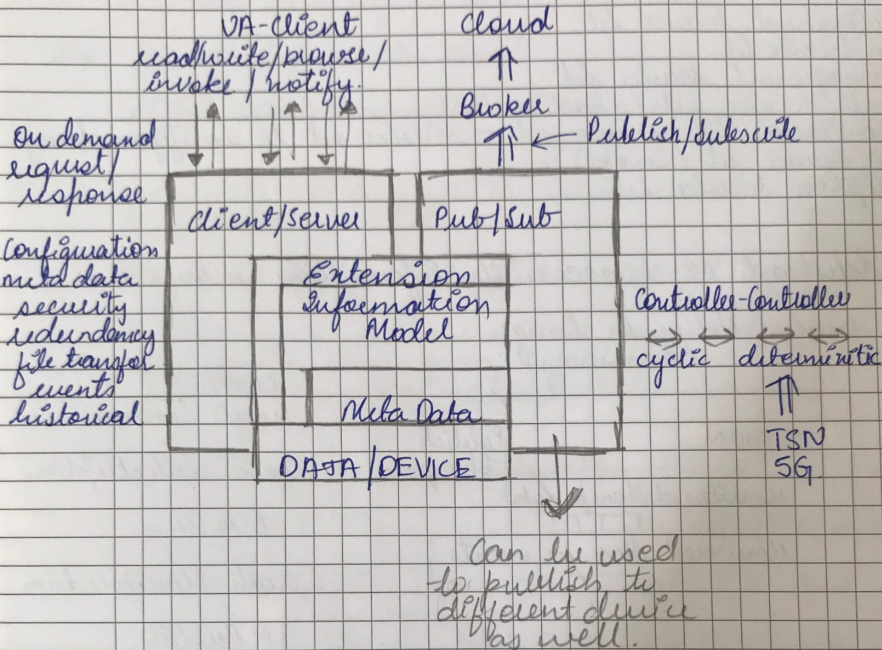 UA-Client
read/write/browse/
invoke/notify.
Cloud
Broker
Publish/Subscribe
On demand
request/
response
Client/Server
Pub/Sub
Configuration
meta data
security
redundancy
file transfer
events
historical
Extension
Information
Model
Meta Data
DATA/DEVICE
Controller-Controller
cyclic deterministic
TSN
5G
Can be used
to publish to
different device
as well.